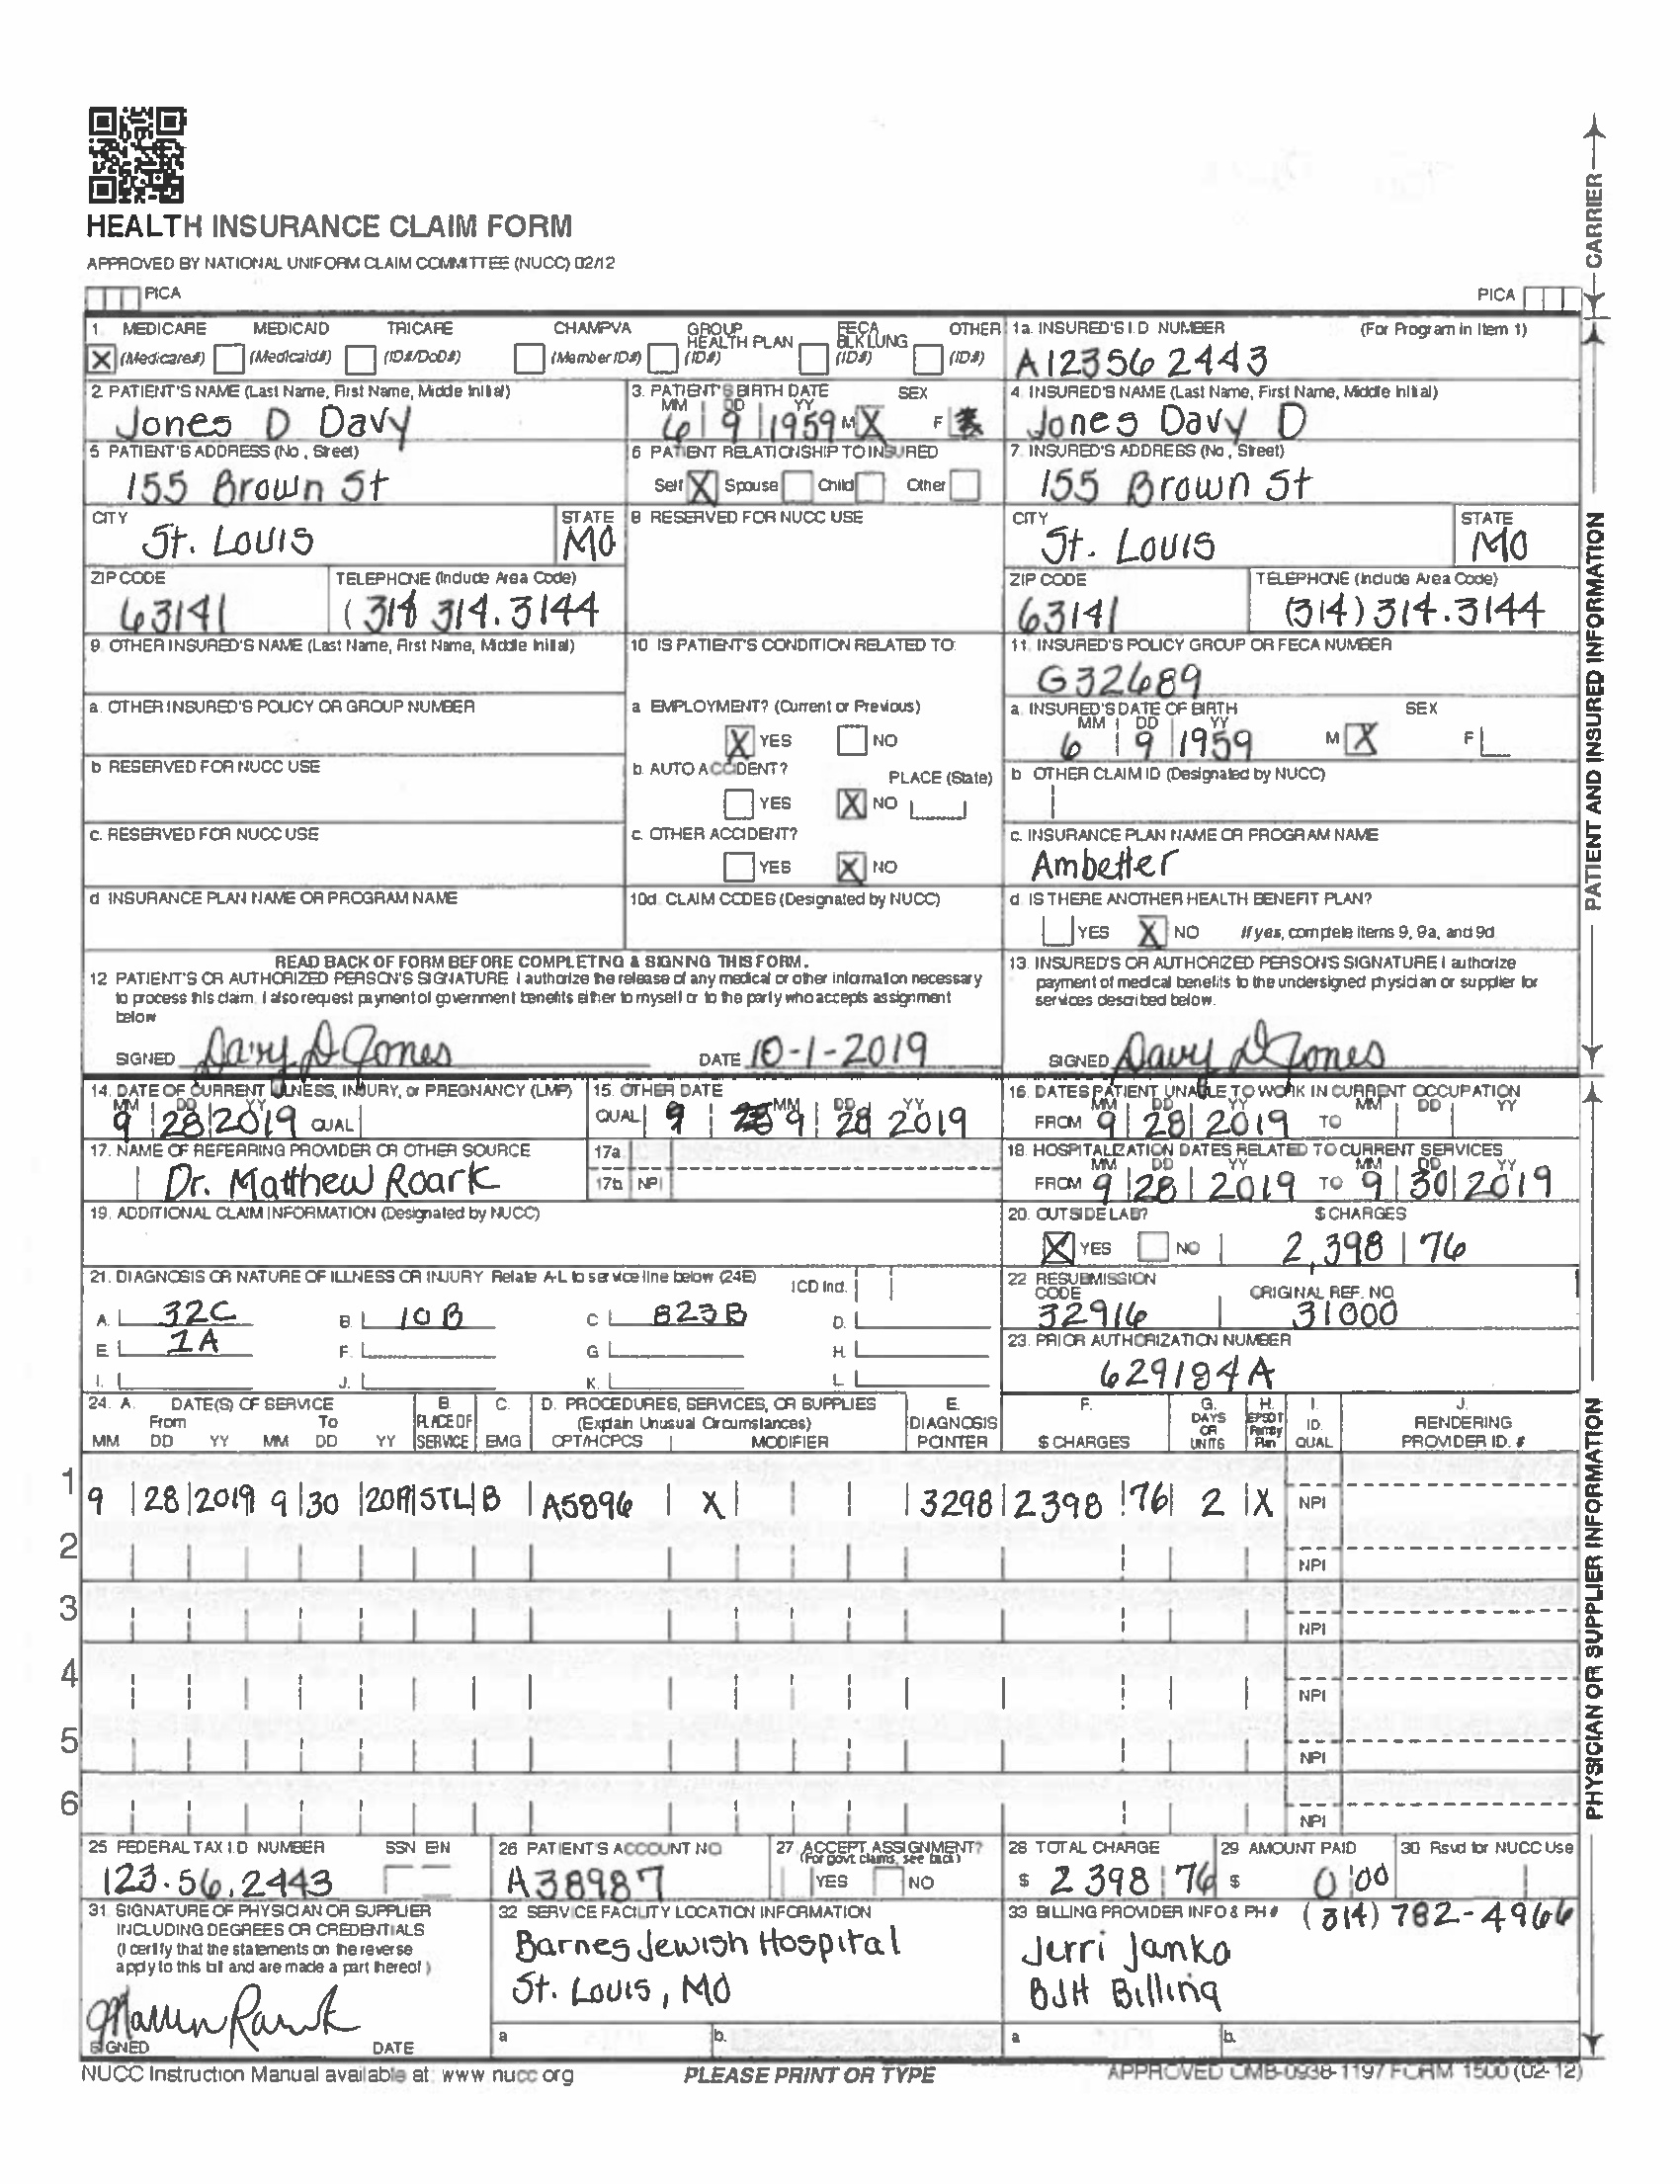 HEALTH INSURANCE CLAIM FORM
APPROVED BY NATIONAL UNIFORM CLAIM COMMITTEE (NUCC) 02/12
PICA PICA
CARRIER
1. MEDICARE MEDICAID TRICARE CHAMPVA GROUP HEALTH PLAN FECA BLK LUNG OTHER
X (Medicare#) (Medicaid#) (ID#/DoD#) (Member ID#) (ID#) (ID#) (ID#)
1a. INSURED'S I.D. NUMBER (For Program in Item 1)
A12356 2443
2. PATIENT'S NAME (Last Name, First Name, Middle Initial)
Jones D Davy
3. PATIENT'S BIRTH DATE SEX
MM DD YY
6 9 1959 M X F
4. INSURED'S NAME (Last Name, First Name, Middle Initial)
Jones Davy D
5. PATIENT'S ADDRESS (No., Street)
155 Brown St
6. PATIENT RELATIONSHIP TO INSURED
Self X Spouse Child Other
7. INSURED'S ADDRESS (No., Street)
155 Brown St
CITY STATE
St. Louis MO
8 RESERVED FOR NUCC USE
CITY STATE
St. Louis MO
ZIP CODE TELEPHONE (Include Area Code)
63141 (314 314.3144
ZIP CODE TELEPHONE (Include Area Code)
63141 (314) 314.3144
9. OTHER INSURED'S NAME (Last Name, First Name, Middle Initial)
10 IS PATIENT'S CONDITION RELATED TO:
11. INSURED'S POLICY GROUP OR FECA NUMBER
G32689
a. OTHER INSURED'S POLICY OR GROUP NUMBER
a EMPLOYMENT? (Current or Previous)
X YES NO
a. INSURED'S DATE OF BIRTH SEX
MM DD YY
6 9 1959 M X F
b RESERVED FOR NUCC USE
b. AUTO ACCIDENT? PLACE (State)
YES X NO
b OTHER CLAIM ID (Designated by NUCC)
c. RESERVED FOR NUCC USE
c. OTHER ACCIDENT?
YES X NO
c. INSURANCE PLAN NAME OR PROGRAM NAME
Ambetter
d INSURANCE PLAN NAME OR PROGRAM NAME
10d. CLAIM CODES (Designated by NUCC)
d. IS THERE ANOTHER HEALTH BENEFIT PLAN?
YES X NO If yes, complete items 9, 9a, and 9d
PATIENT AND INSURED INFORMATION
READ BACK OF FORM BEFORE COMPLETING & SIGNING THIS FORM.
12 PATIENT'S OR AUTHORIZED PERSON'S SIGNATURE I authorize the release of any medical or other information necessary
to process this claim. I also request payment of government benefits either to myself or to the party who accepts assignment
below
SIGNED Davy D Jones DATE 10-1-2019
13. INSURED'S OR AUTHORIZED PERSON'S SIGNATURE I authorize
payment of medical benefits to the undersigned physician or supplier for
services described below.
SIGNED Davy D Jones
14. DATE OF CURRENT ILLNESS, INJURY, or PREGNANCY (LMP)
MM DD YY
9 28 2019 QUAL
15. OTHER DATE
MM DD YY
QUAL 9 28 9 28 2019
16. DATES PATIENT UNABLE TO WORK IN CURRENT OCCUPATION
MM DD YY MM DD YY
FROM 9 28 2019 TO
17. NAME OF REFERRING PROVIDER OR OTHER SOURCE
Dr. Matthew Roark
17a.
17b. NPI
18. HOSPITALIZATION DATES RELATED TO CURRENT SERVICES
MM DD YY MM DD YY
FROM 9 28 2019 TO 9 30 2019
19. ADDITIONAL CLAIM INFORMATION (Designated by NUCC)
20. OUTSIDE LAB? $ CHARGES
X YES NO 2,398 76
21. DIAGNOSIS OR NATURE OF ILLNESS OR INJURY Relate A-L to service line below (24E) ICD Ind.
A. 32C B. 10B C. 823B D.
E. 1A F. G. H.
I. J. K. L.
22 RESUBMISSION CODE ORIGINAL REF. NO
32916 31000
23. PRIOR AUTHORIZATION NUMBER
629184A
24. A. DATE(S) OF SERVICE B. C. D. PROCEDURES, SERVICES, OR SUPPLIES E. F. G. H. I. J.
From To PLACE OF (Explain Unusual Circumstances) DIAGNOSIS DAYS OR EPSDT Family ID. RENDERING
MM DD YY MM DD YY SERVICE EMG CPT/HCPCS MODIFIER POINTER $ CHARGES UNITS Plan QUAL PROVIDER ID. #
1 9 28 2019 9 30 2019 STL B A5896 X 3298 2398 76 2 X NPI
2 NPI
3 NPI
4 NPI
5 NPI
6 NPI
PHYSICIAN OR SUPPLIER INFORMATION
25 FEDERAL TAX I.D. NUMBER SSN EIN
123.56.2443
26 PATIENT'S ACCOUNT NO
A38987
27 ACCEPT ASSIGNMENT?
(For govt. claims, see back)
YES NO
28 TOTAL CHARGE
$ 2398 76
29 AMOUNT PAID
$ 0 00
30 Rsvd for NUCC Use
31. SIGNATURE OF PHYSICIAN OR SUPPLIER
INCLUDING DEGREES OR CREDENTIALS
(I certify that the statements on the reverse
apply to this bill and are made a part thereof)
SIGNED DATE
32 SERVICE FACILITY LOCATION INFORMATION
Barnes Jewish Hospital
St. Louis, MO
a b.
33 BILLING PROVIDER INFO & PH # (314) 782-4966
Jerri Janko
BJH Billing
a b.
NUCC Instruction Manual available at: www nucc org PLEASE PRINT OR TYPE APPROVED OMB-0938-1197 FORM 1500 (02-12)